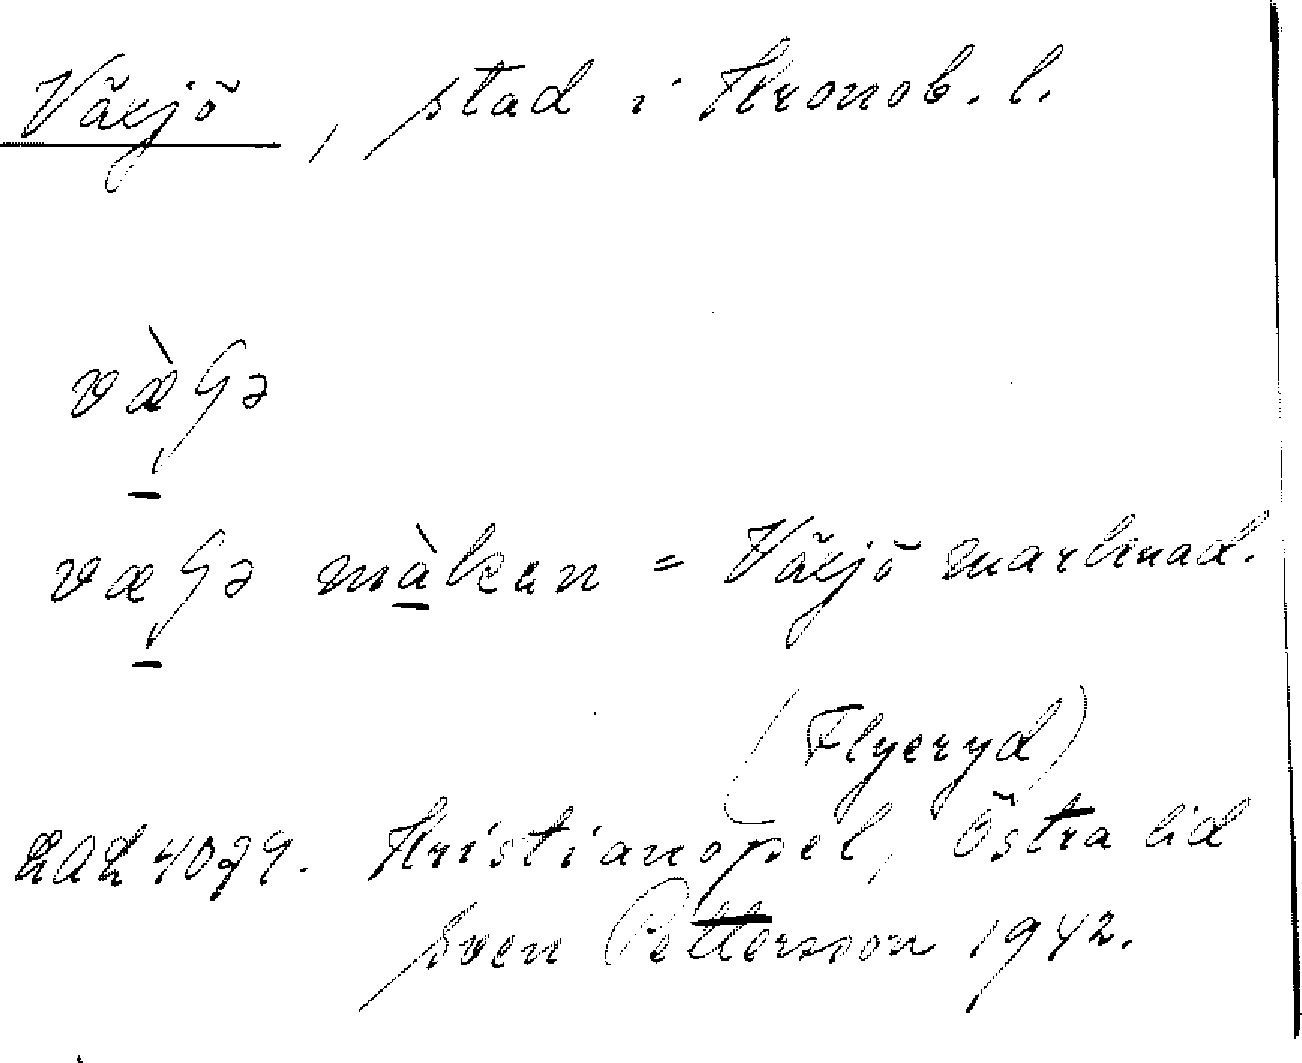 Växjö, stad i Kronob. l.
væ̀Gə
væGə màken = Växjö marknad.
(Flyeryd)
LAL 4079. Kristianopel, Östra hd
Sven Pettersson 1942.